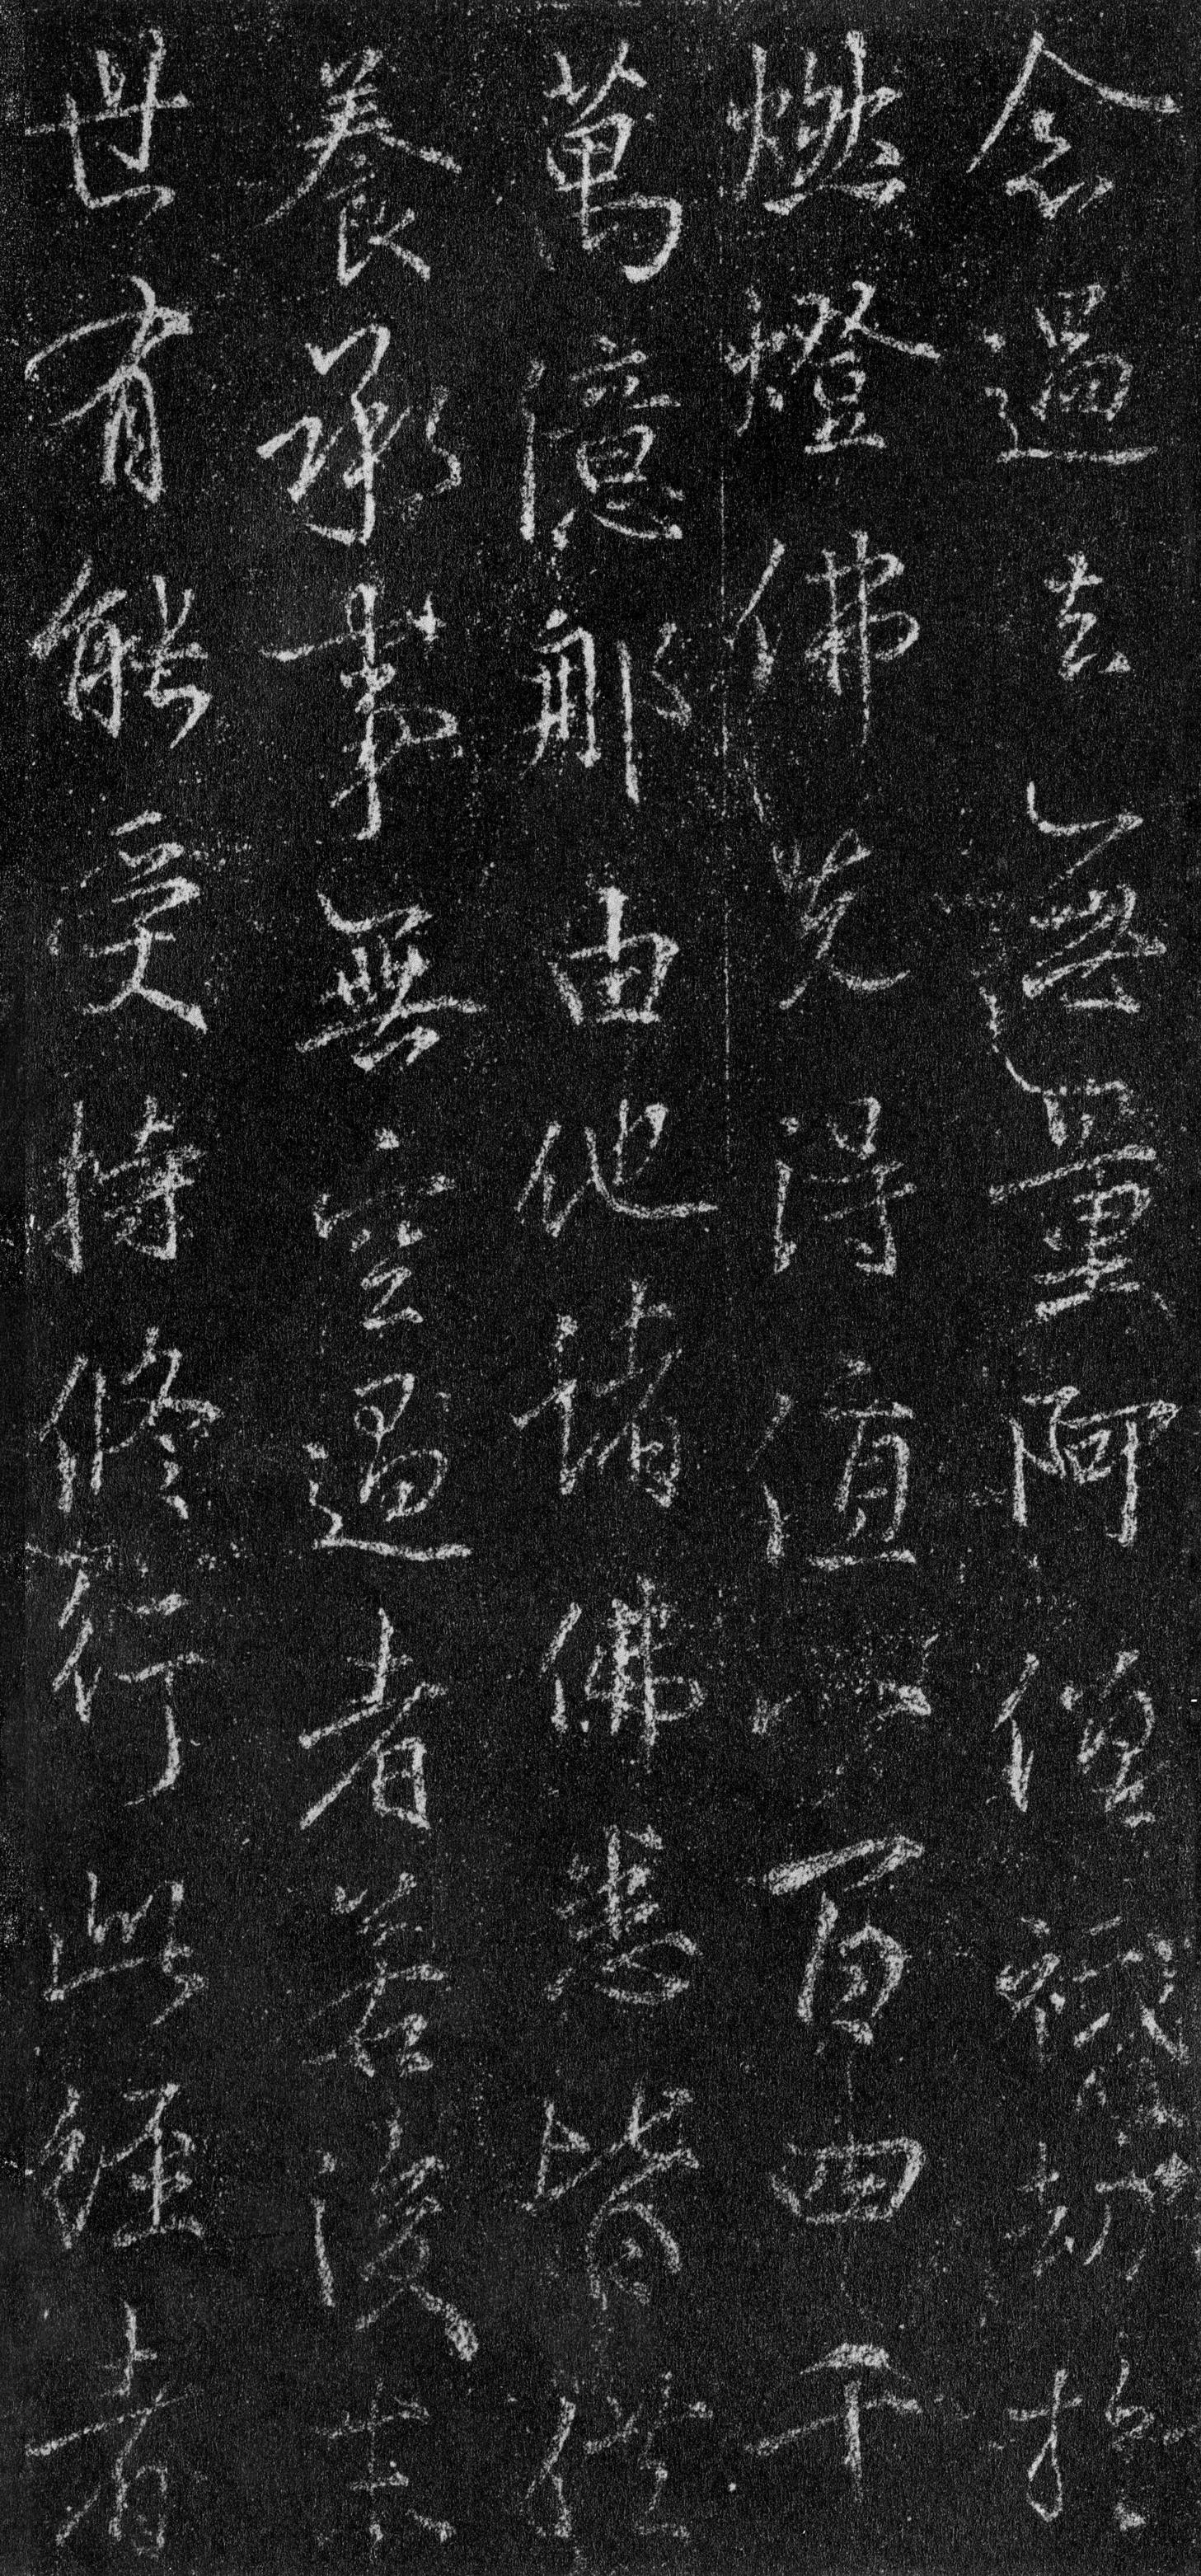 念過去無量阿僧祇劫於
燃燈佛先得值八百四千
萬億那由他諸佛悉皆供
養承事無空過者若後末
世有能受持修行此經者